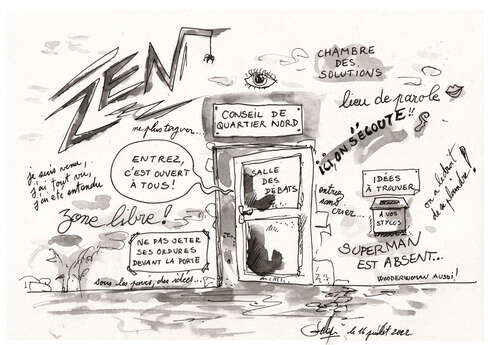 ZEN
CHAMBRE
DES
SOLUTIONS
lieu de parole
CONSEIL DE
QUARTIER NORD
ICI, ON S'ÉCOUTE !!
ne plus tergiver...
je suis venu,
j'ai tout vu,
j'ai été entendu
ENTREZ,
C'EST OUVERT
À TOUS !
SALLE
DES
DÉBATS
IDÉES
À TROUVER
À VOS
STYLOS
on a le droit
de se plaindre !
entrez
sans
crier...
zone libre !
NE PAS JETER
SES ORDURES
DEVANT LA PORTE
SUPERMAN
EST ABSENT...
WONDERWOMAN AUSSI !
sous les pavés, des idées...
le 16 juillet 2022